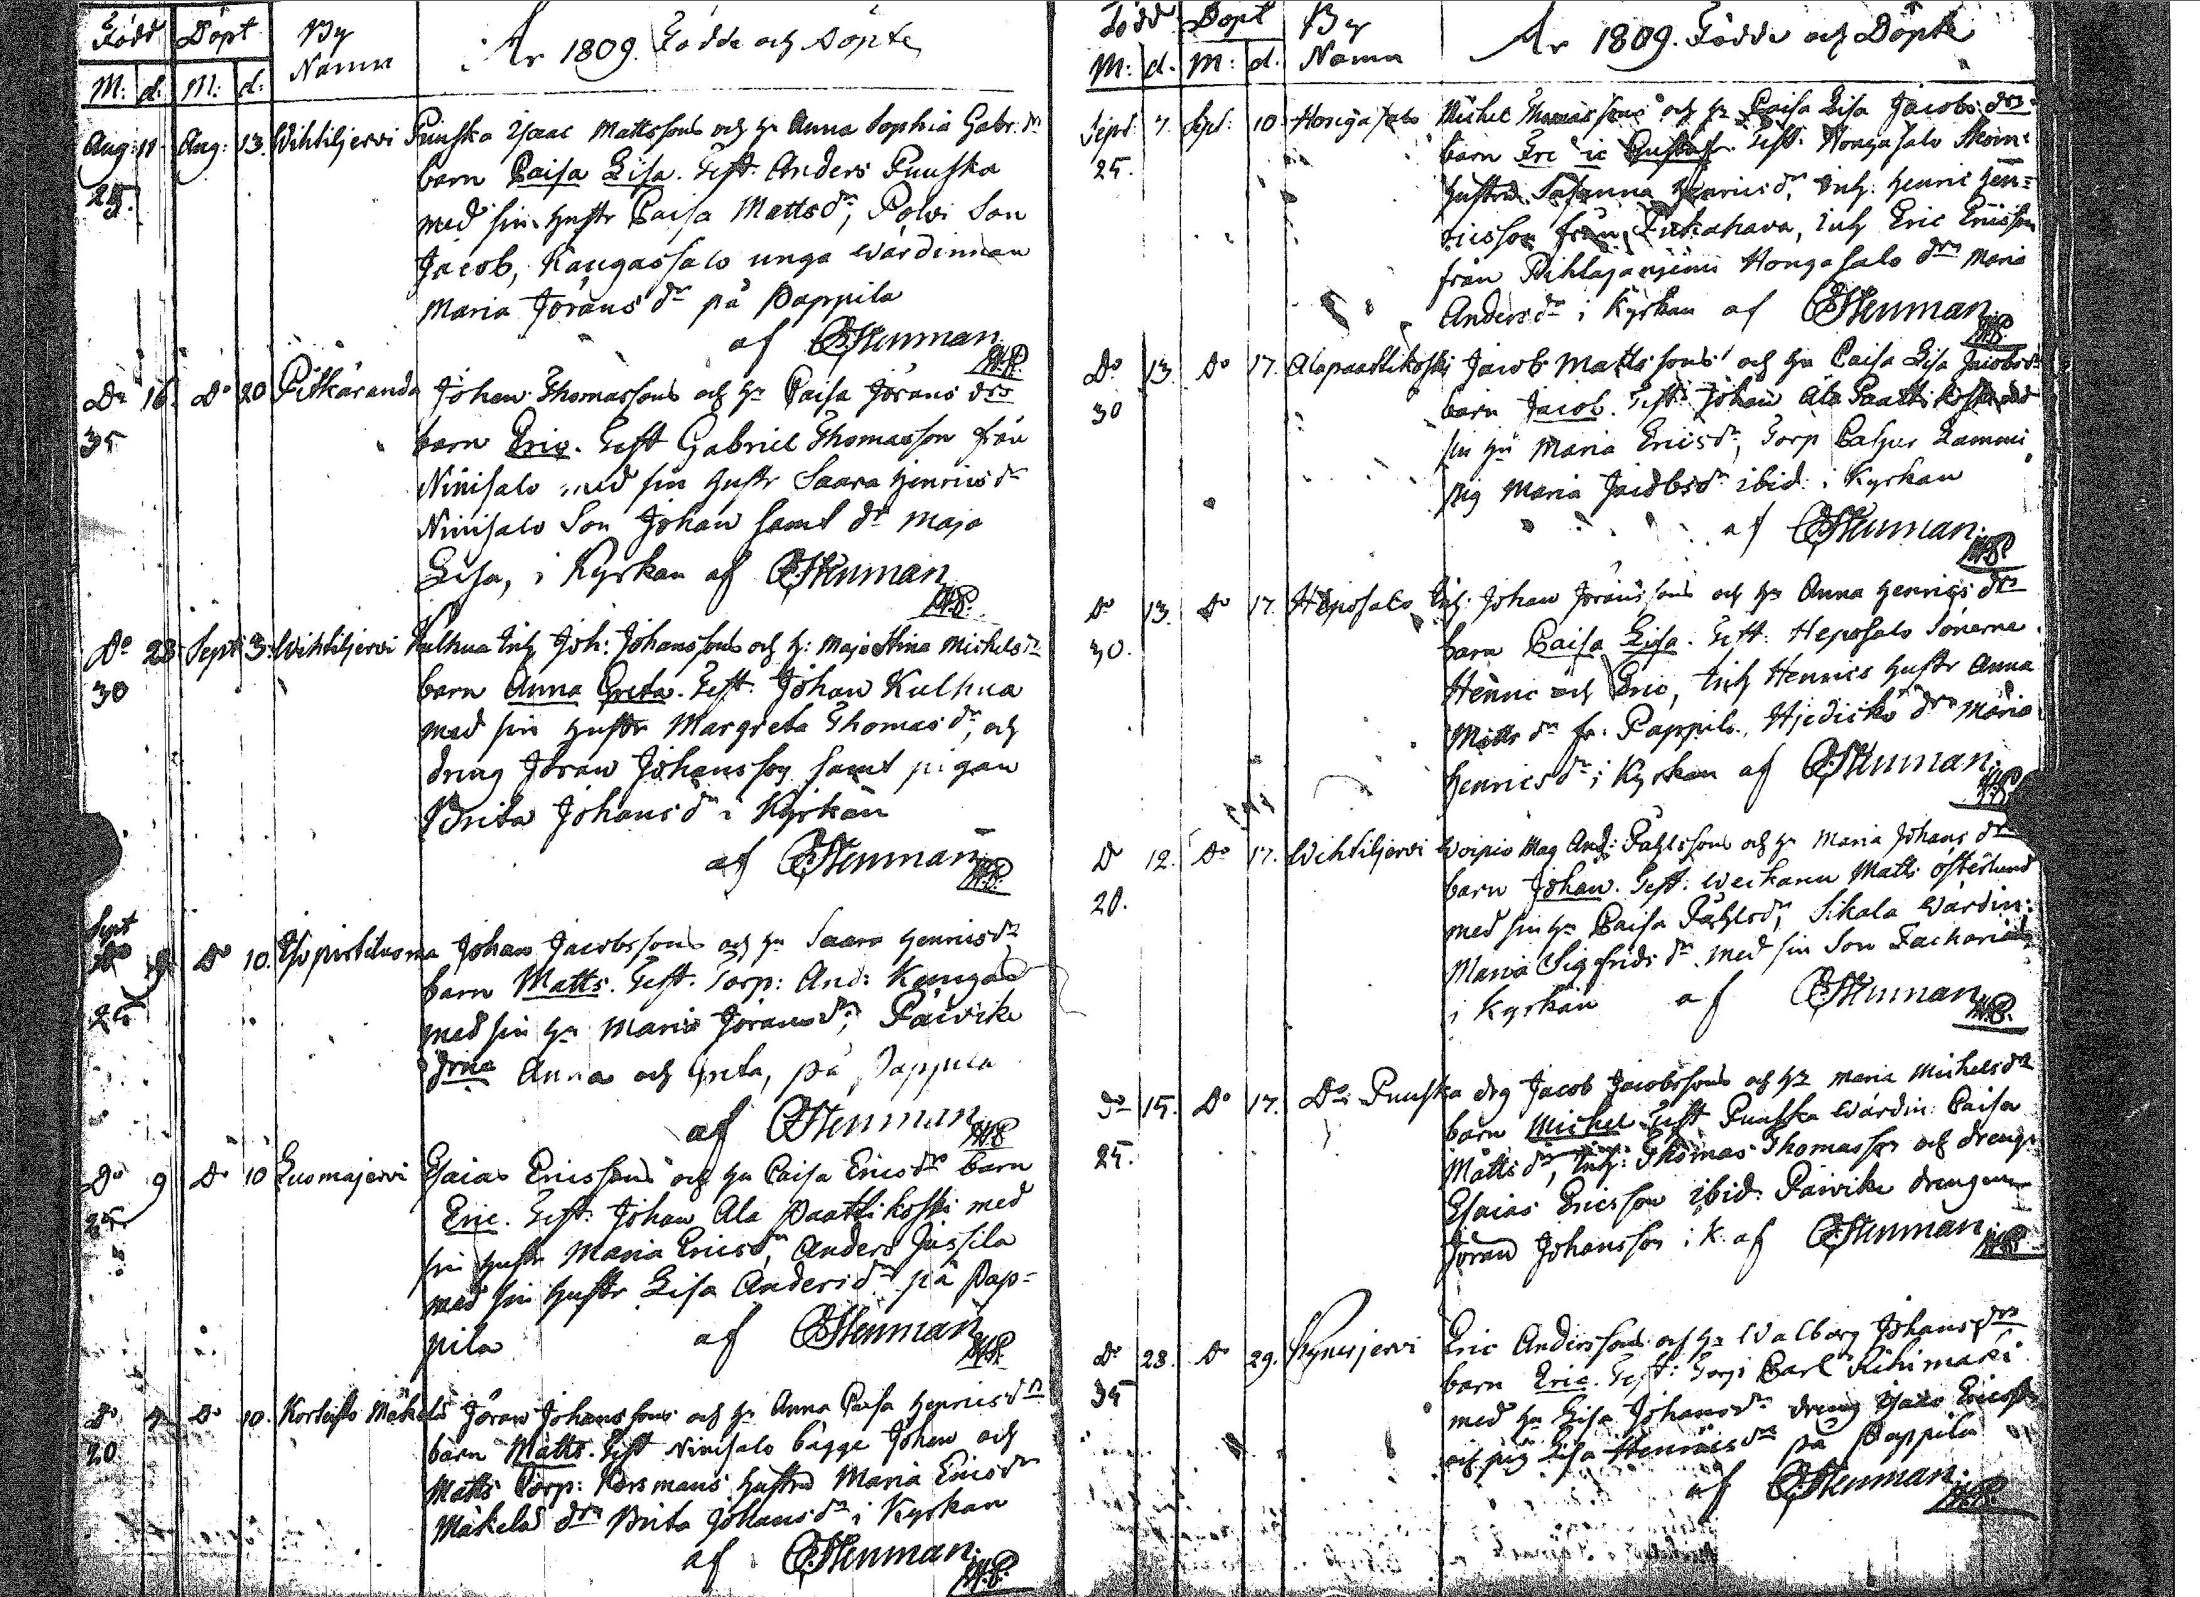 Född Döpt By Namn År 1809. Födde och Döpte
M: d: M: d:
Aug: 11 Aug: 13. Wihtiljervi Puuska Isaac Mattssons och h: Anna Sophia Gabr. dr
25. barn Caisa Lisa. Test: Anders Puuska
med sin hustr Caisa Matts dr, Son
Jacob, Kangassalo unga Wärdinnan
Maria Jörans dr på Pappila
af Stenman
Do 16. Do 20 Pitkäranda Johan Thomassons och h: Caisa Jörans drs
35 barn Eric. Test Gabriel Thomasson från
Ninisalo med sin hustr Saara Henrics dr
Ninisalo Son Johan samt dr Maja
Lisa, i Kyrkan af Stenman
Do 28 Sept 3: Wihtiljervi Kulhua Inh Joh: Johanssons och h: Maja Stina Michels dr
30 barn Anna Greta. Test: Johan Kulhua
med sin hustr Margreta Thomas dr, och
dreng Jöran Johansson samt pigan
Brita Johans dr i Kyrkan
af Stenman
Sept
9 Do 10. Johan Jacobssons och h: Saara Henrics dr
25 barn Matts. Test: Torp: And: Kangas
med sin h: Maria Jörans dr, Päivike
drna Anna och Greta, på Pappila
af Stenman
Do 9 Do 10 Luomajervi Esaias Ericssons och h: Caisa Erics drs barn
25 Eric. Test: Johan Ala Paattikoski med
sin hustr Maria Erics dr, Anders Jussila
med sin hustr Lisa Anders dr på Pap=
pila af Stenman
Do 4 Do 10. Mäkelä Jöran Johanssons och h: Anna Caisa Henrics dr
20 barn Matts. Test Ninisalo bägge Johan och
Matts Torp: Korsmans hustru Maria Erics dr
Mäkelä drn Brita Johans dr i Kyrkan
af Stenman
Född Döpt By Namn År 1809. Födde och Döpte
M: d. M: d.
Sept: 7. Sept: 10. Hongasalo Michel Thomassons och h: Caisa Lisa Jacobs drs
25. barn Eric Gustaf. Test. Hongasalo
hustru Susanna Henrics dr, Inh: Henric Hen=
ricsson från Pitkahara, Inh Eric Ericsson
från Pihlajaniemi Hongasalo drn Maria
Anders dr i Kyrkan af Stenman
Do 13. Do 17. Alapaattikoski Jacob Mattssons och h: Caisa Lisa Jacobs dr
30 barn Jacob. Test: Johan Ala Paattikoski med
sin h: Maria Erics dr, Torp Casper Lammi
pig Maria Jacobs dr ibid: i Kyrkan
af Stenman
Do 13. Do 17. Heposalo Inh: Johan Jöranssons och h: Anna Henrics drs
30. barn Caisa Lisa. Test: Heposalo Sönerne
Henric och Eric, Inh Henrics hustr Anna
Matts dr fr. Pappila, drn Maria
Henrics dr i Kyrkan af Stenman
Do 12. Do 17. Wihtiljervi Woipio Mag And: Påhlssons och h: Maria Johans dr
20. barn Johan. Test: Matts Österlund
med sin h: Caisa Påhls dr, Sikala Wärdin:
Maria Sigfrids dr med sin Son Zacharias
i Kyrkan af Stenman
Do 15. Do 17. Do Puuska drg Jacob Jacobssons och h: Maria Michels dr
25. barn Michel. Test Puuska Wärdin: Caisa
Matts dr, Inh: Thomas Thomasson och dreng
Esaias Ericsson ibid: Päivike drengen
Jöran Johansson i K. af Stenman
Do 28. Do 29. Kynesjervi Eric Anderssons och h: Walborg Johans drs
35 barn Eric. Test: Torp Carl Riihimäki
med h: Lisa Johans dr dreng Isaac Ericss
och pig Lisa Henrics dr på Pappila
af Stenman